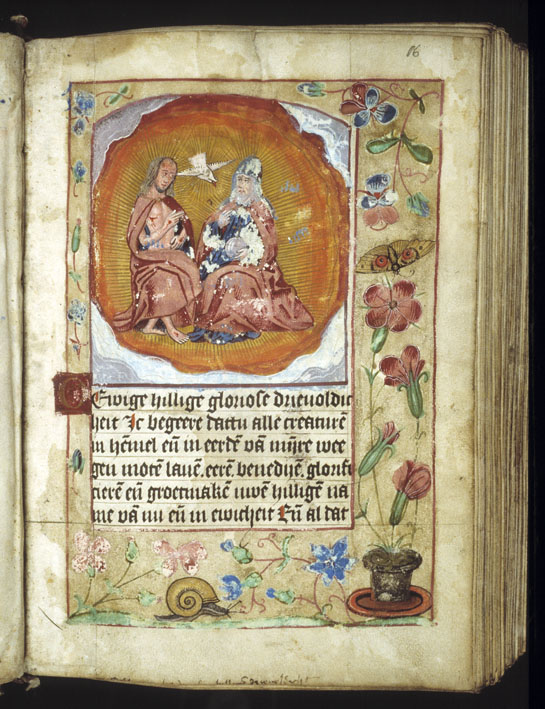 86
O Ewige hillige gloriose drievoldic
heit Ic begeere dattu alle creaturē
in hēmel eñ in eerdē vā mijre wee
gen motē lauē, eerē, benedijē, glorifi
cierē eñ groetmakē uwē hilligē na
me vā nu eñ in ewicheit Eñ al dat